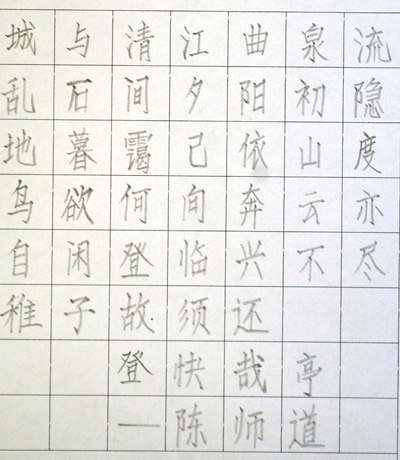 城与清江曲泉流
乱石间夕阳初隐
地暮霭已依山度
鸟欲何向奔云亦
自闲登临兴不尽
稚子故须还
登快哉亭
—陈师道